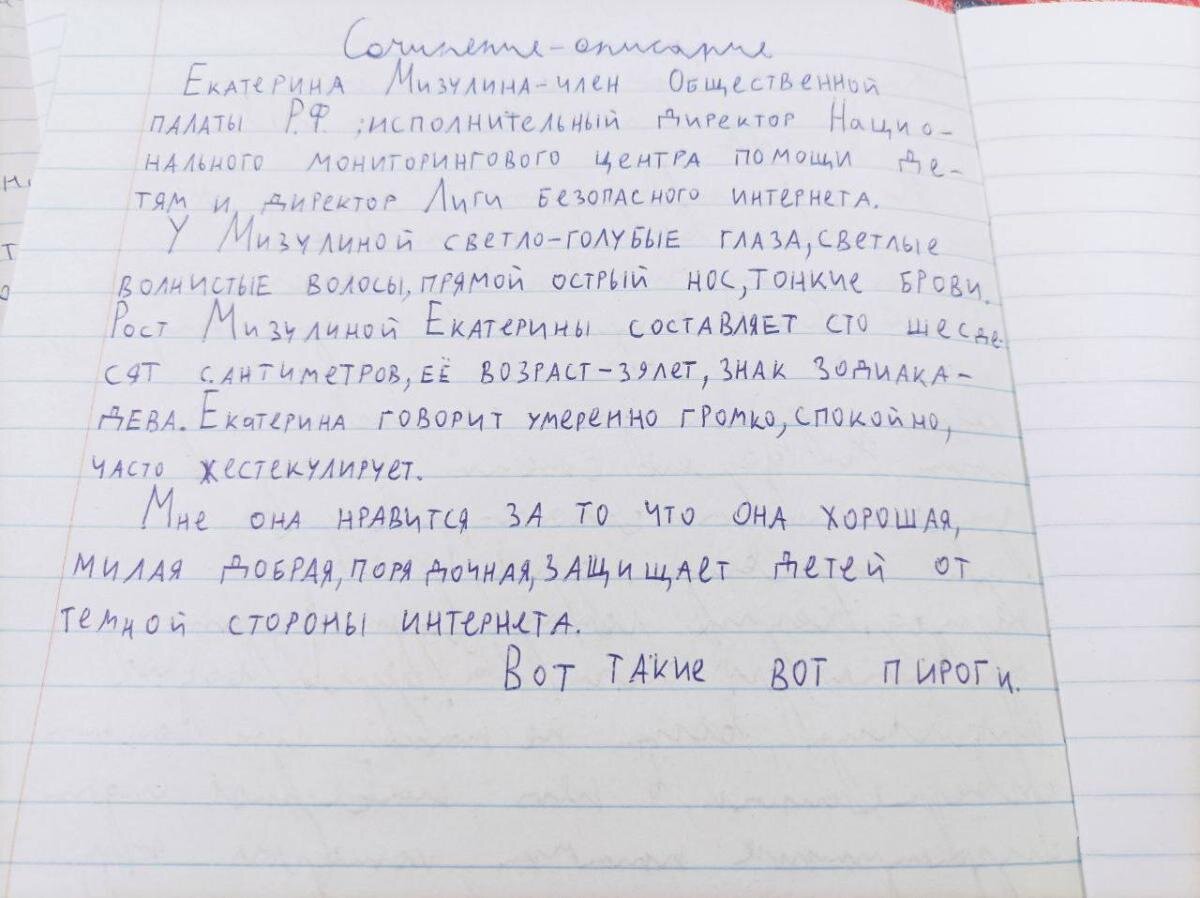 Сочинение-описание
Екатерина Мизулина-член Общественной
палаты Р.Ф.;исполнительный директор Нацио-
нального мониторингового центра помощи де-
тям и директор Лиги безопасного интернета.
У Мизулиной светло-голубые глаза,светлые
волнистые волосы,прямой острый нос,тонкие брови.
Рост Мизулиной Екатерины составляет сто шесде-
сят сантиметров,её возраст-39лет,знак зодиака-
дева.Екатерина говорит умеренно громко,спокойно,
часто жестекулирует.
Мне она нравится за то что она хорошая,
милая добрая,порядочная,защищает детей от
темной стороны интернета.
Вот такие вот пироги.